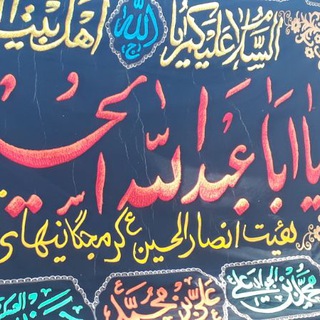 السلام علیکم یا اهل بیت
الله
یا اباعبدالله الحسین
هیئت انصار الحسین ع کرمجگانیهای
محمد بن علی علی بن محمد